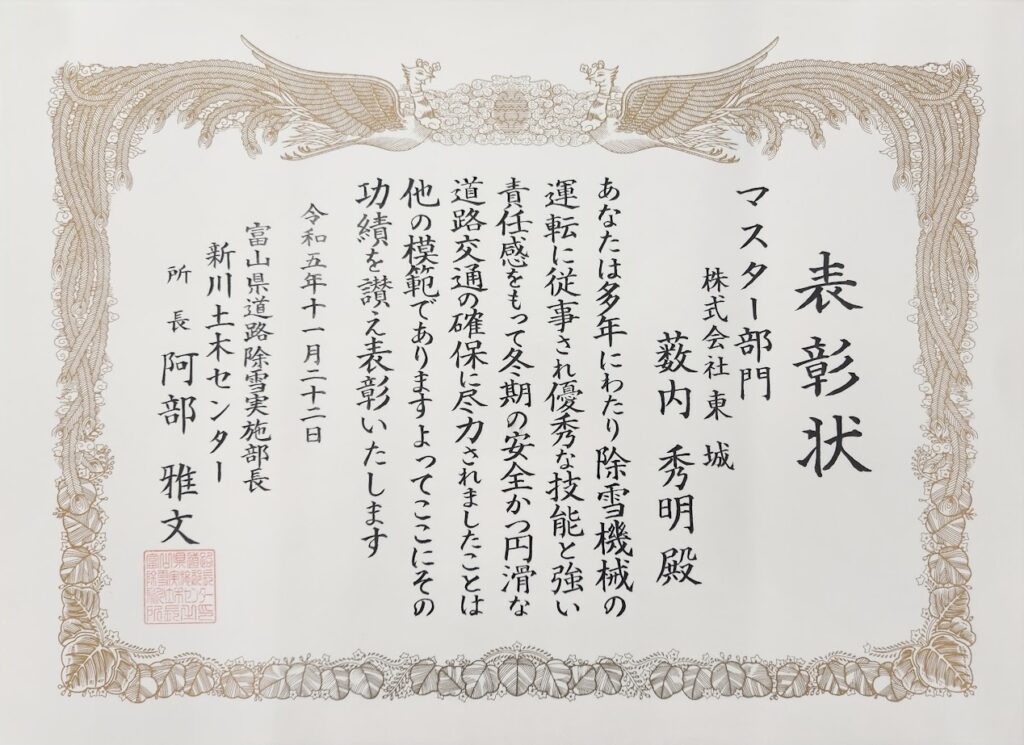 表彰状
マスター部門
株式会社東城
薮内秀明殿
あなたは多年にわたり除雪機械の
運転に従事され優秀な技能と強い
責任感をもって冬期の安全かつ円滑な
道路交通の確保に尽力されましたことは
他の模範でありますよってここにその
功績を讃え表彰いたします
令和五年十一月二十二日
富山県道路除雪実施部長
新川土木センター
所長阿部雅文